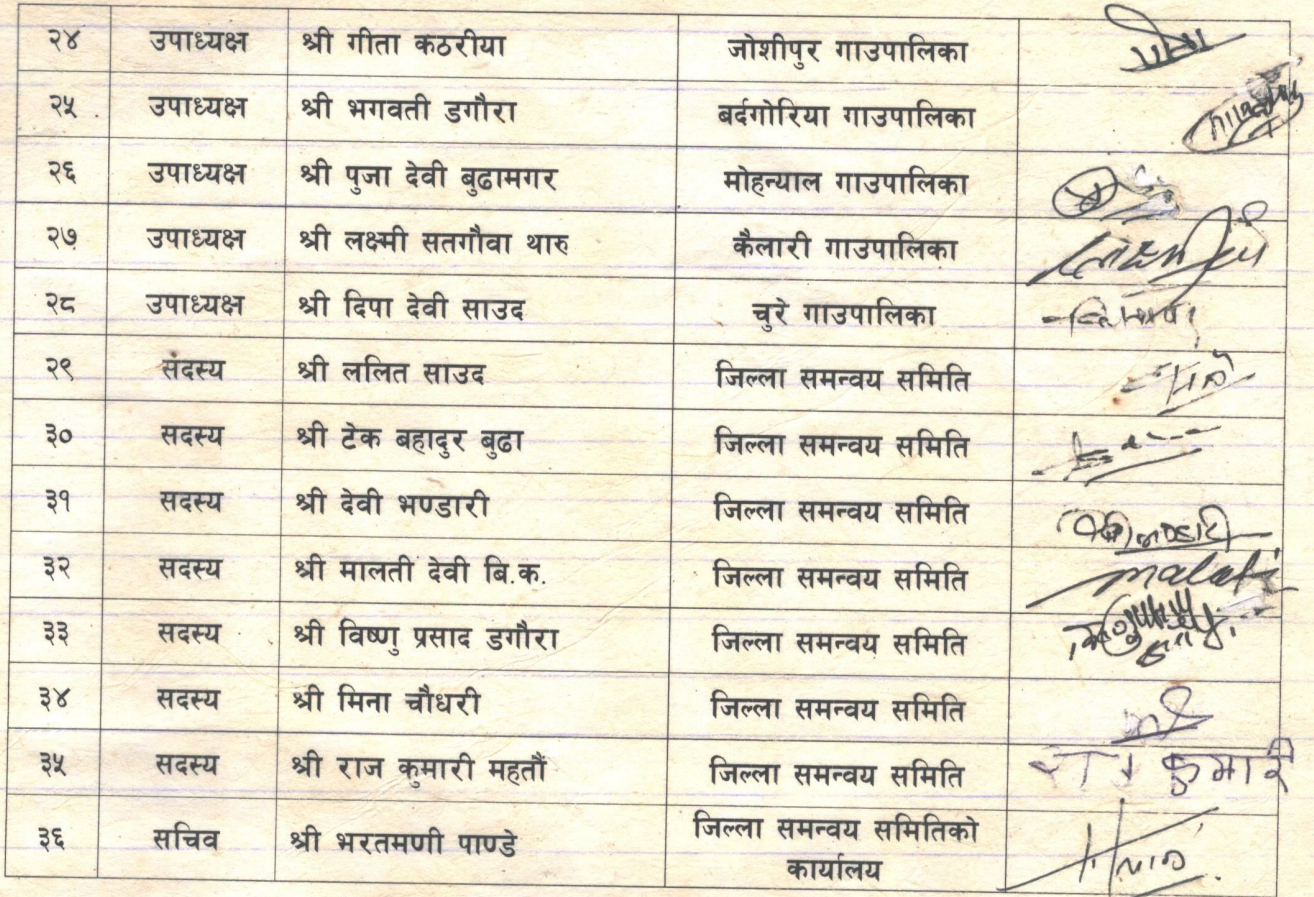 २४ उपाध्यक्ष श्री गीता कठरीया जोशीपुर गाउपालिका
२५ उपाध्यक्ष श्री भगवती डगौरा बर्दगोरिया गाउपालिका
२६ उपाध्यक्ष श्री पुजा देवी बुढामगर मोहन्याल गाउपालिका
२७ उपाध्यक्ष श्री लक्ष्मी सतगौवा थारु कैलारी गाउपालिका
२८ उपाध्यक्ष श्री दिपा देवी साउद चुरे गाउपालिका
२९ सदस्य श्री ललित साउद जिल्ला समन्वय समिति
३० सदस्य श्री टेक बहादुर बुढा जिल्ला समन्वय समिति
३१ सदस्य श्री देवी भण्डारी जिल्ला समन्वय समिति
३२ सदस्य श्री मालती देवी बि.क. जिल्ला समन्वय समिति malati
३३ सदस्य श्री विष्णु प्रसाद डगौरा जिल्ला समन्वय समिति
३४ सदस्य श्री मिना चौधरी जिल्ला समन्वय समिति
३५ सदस्य श्री राज कुमारी महतौं जिल्ला समन्वय समिति
३६ सचिव श्री भरतमणी पाण्डे जिल्ला समन्वय समितिको
कार्यालय